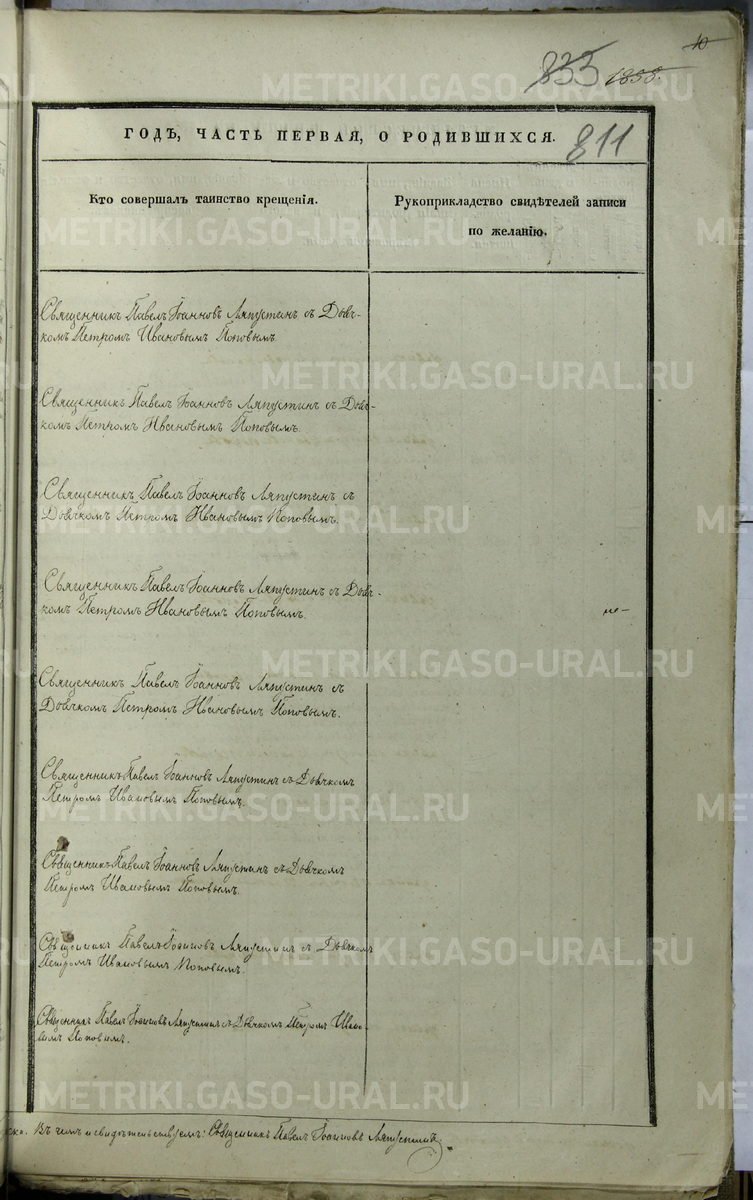 10
833 1858.
811
ГОДЪ, ЧАСТЬ ПЕРВАЯ, О РОДИВШИХСЯ.
Кто совершалъ таинство крещенія.
Рукоприкладство свидѣтелей записи
по желанію.
Священникъ Павелъ Іоанновъ Ляпустинъ съ Дьяч-
комъ Петромъ Ивановымъ Поповымъ.
Священникъ Павелъ Іоанновъ Ляпустинъ съ Дьяч-
комъ Петромъ Ивановымъ Поповымъ.
Священникъ Павелъ Іоанновъ Ляпустинъ съ
Дьячкомъ Петромъ Ивановымъ Поповымъ.
Священникъ Павелъ Іоанновъ Ляпустинъ съ Дьяч-
комъ Петромъ Ивановымъ Поповымъ.
Священникъ Павелъ Іоанновъ Ляпустинъ съ
Дьячкомъ Петромъ Ивановымъ Поповымъ.
Священникъ Павелъ Іоанновъ Ляпустинъ съ Дьячкомъ
Петромъ Ивановымъ Поповымъ.
Священникъ Павелъ Іоанновъ Ляпустинъ съ Дьячкомъ
Петромъ Ивановымъ Поповымъ.
Священникъ Павелъ Іоанновъ Ляпустинъ съ Дьячкомъ
Петромъ Ивановымъ Поповымъ.
Священникъ Павелъ Іоанновъ Ляпустинъ съ Дьячкомъ Петромъ Ивано-
вымъ Поповымъ.
Въ чемъ и свидѣтельствуемъ: Священникъ Павелъ Іоанновъ Ляпустинъ
METRIKI.GASO-URAL.RU